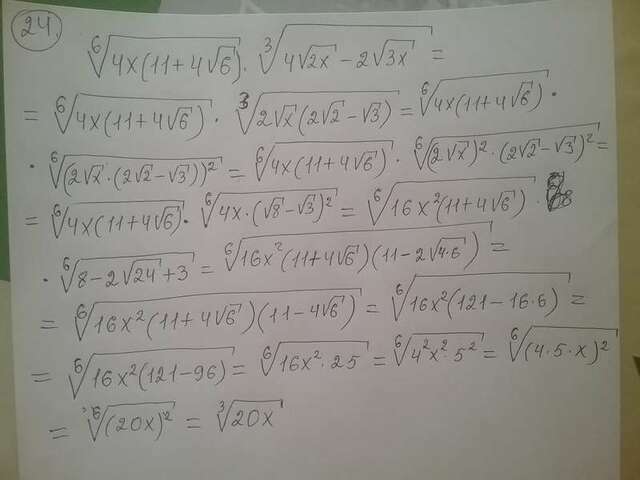 24.
⁶√(4x(11+4√6)) · ³√(4√2x − 2√3x) =
= ⁶√(4x(11+4√6)) · ³√(2√x(2√2 − √3)) = ⁶√(4x(11+4√6)) ·
· ⁶√((2√x · (2√2 − √3))²) = ⁶√(4x(11+4√6)) · ⁶√((2√x)² · (2√2 − √3)²) =
= ⁶√(4x(11+4√6)) · ⁶√(4x · (√8 − √3)²) = ⁶√(16x²(11+4√6)) ·
· ⁶√(8 − 2√24 + 3) = ⁶√(16x²(11+4√6)(11 − 2√4·6)) =
= ⁶√(16x²(11+4√6)(11 − 4√6)) = ⁶√(16x²(121 − 16·6)) =
= ⁶√(16x²(121−96)) = ⁶√(16x² · 25) = ⁶√(4²x² · 5²) = ⁶√((4·5·x)²)
= ⁶√((20x)²) = ³√(20x)